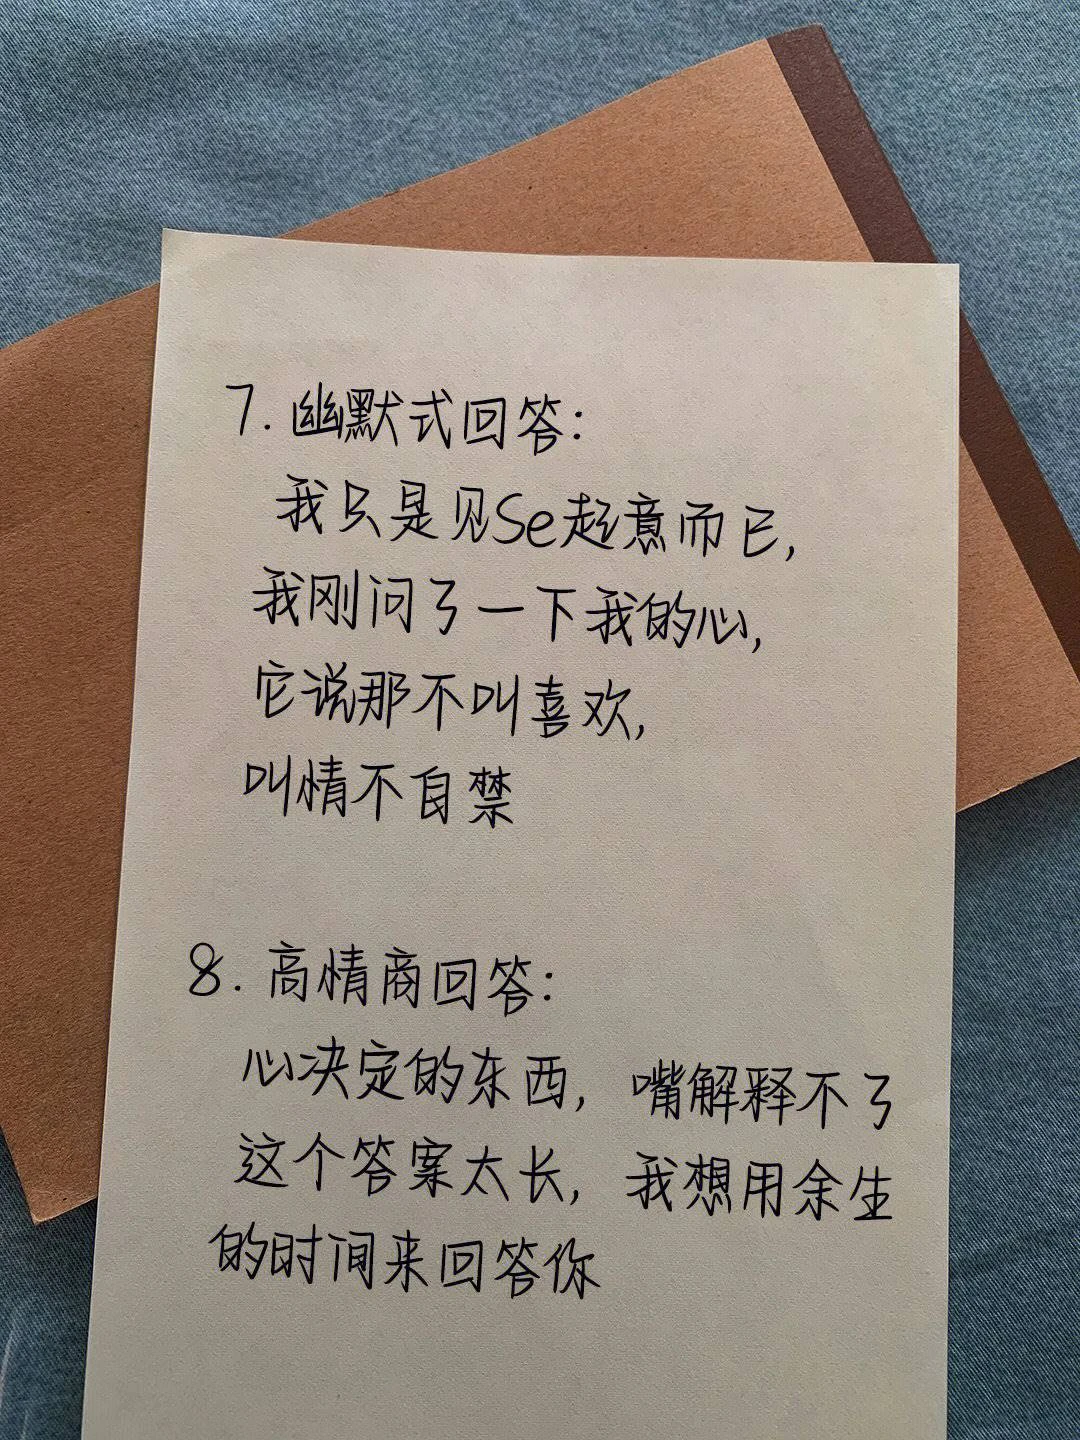 7. 幽默式回答:
我只是见Se起意而已,
我刚问了一下我的心,
它说那不叫喜欢,
叫情不自禁
8. 高情商回答:
心决定的东西, 嘴解释不了
这个答案太长, 我想用余生
的时间来回答你